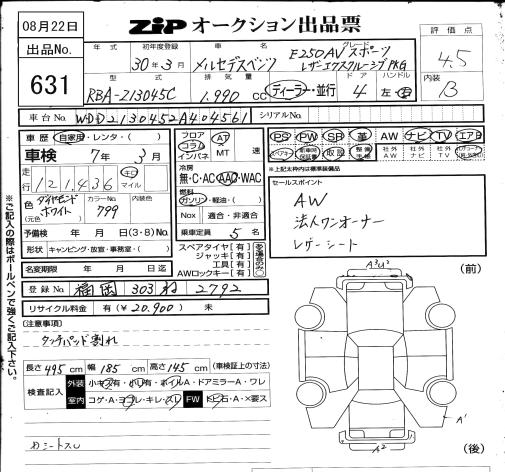 08月22日
ZIP オークション出品票
出品No. 631
年式 初年度登録 車名 グレード
30年3月 メルセデスベンツ E250AV スポーツ
レザーエクスクルーシブPKG
評価点 4.5
型式 排気量 ドア ハンドル
RBA-213045C 1.990 cc ディーラー・並行 4 左・右
内装 B
車台No. WDD2130452A404561 シリアルNo.
車歴 自家用・レンタ・( )
車検 7年 3月
走行 121,436 キロ マイル
色(元色) ダイヤモンドホワイト カラーNo. 799 内装色
予備検 年 月 日(3・8)No.
形状 キャンピング・放宣・事務室・( )
名変期限 年 月 日迄
フロア コラム インパネ AT MT 速
冷房 無・C・AC・AAC・WAC
燃料 ガソリン・軽油・( )
Nox 適合・非適合
乗車定員 5 名
スペアタイヤ [有]
ジャッキ [有]
工具 [有]
AWロックキー [有]
PS PW SR 革 AW ナビ TV エアB
スペアキー 取説 整備手帳 社外AW 社外ナビ 社外TV
※上記太枠内は標準装備品
セールスポイント
AW
法人ワンオーナー
レザーシート
登録No. 福岡 303 ね 2792
リサイクル料金 有(¥20.900) 未
(注意事項)
タッチパッド割れ
長さ 495 cm 幅 185 cm 高さ 145 cm (車検証上の寸法)
検査記入 外装 小キズ有・小凹有・ホイルA・ドアミラーA・ワレ
室内 コゲ・A・ヨゴレ・キレ・スレ FW トビ石・A・×要ス
(前)
A'
A²
(後)
※ご記入の際はボールペンで強くご記入下さい。